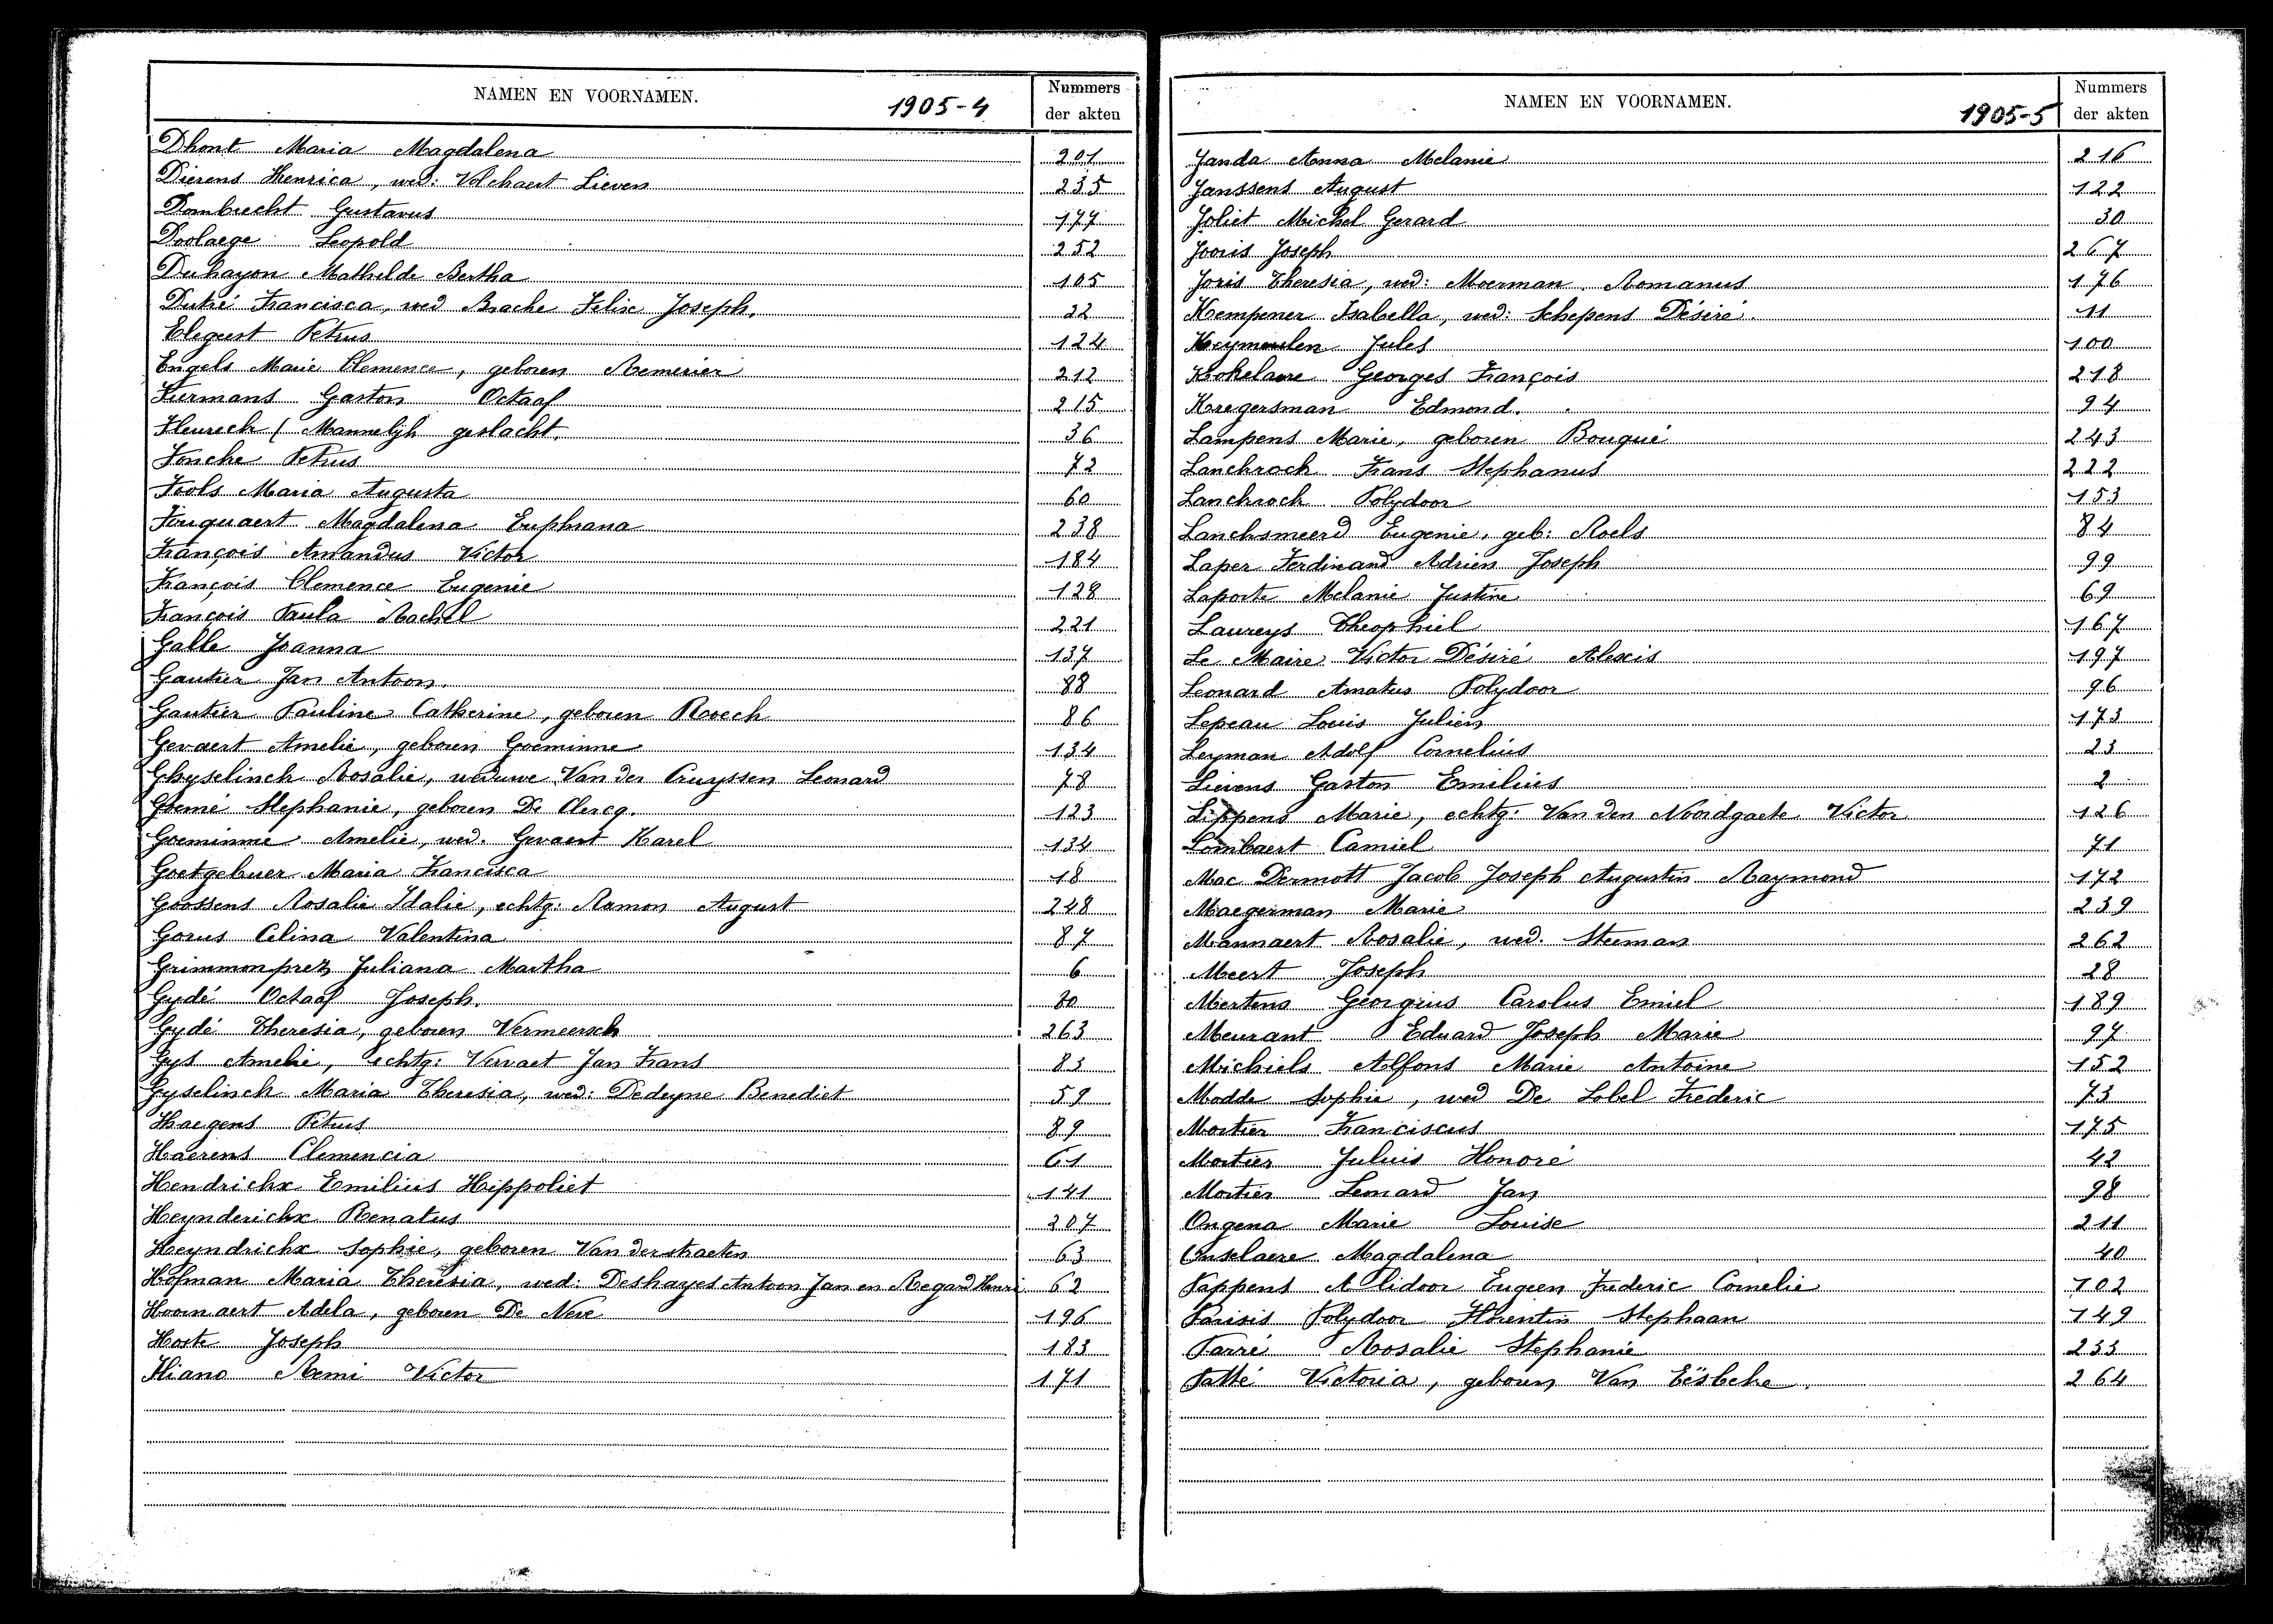 NAMEN EN VOORNAMEN. 1905-4 Nummers der akten
Dhont Maria Magdalena 201
Dierens Henrica, wed: Volckaert Lieven 235
Dombrecht Gustavus 177
Doolaege Leopold 252
Duhayon Mathilde Bertha 105
Dutré Francisca, wed Brache Felix Joseph. 22
Elegeest Petrus 124
Engels Marie Clemence, geboren Remerier 212
Fiermans Gaston Octaaf 215
Fleurech ( Mannelijk geslacht. 36
Foncke Petrus 72
Fools Maria Augusta 60
Fouquaert Magdalena Euphrana 238
François Amandus Victor 184
François Clemence Eugenie 128
François Paula Rachel 221
Galle Joanna 137
Gautier Jan Antoon. 88
Gautier Pauline Catherine, geboren Roeck 86
Gevaert Amelie, geboren Goeminne 134
Ghyselinck Rosalie, weduwe Van der Cruyssen Leonard 78
Goemé Stephanie, geboren De Clercq. 123
Goeminne Amelie, wed. Gevaert Karel 134
Goetgebuer Maria Francisca 18
Goossens Rosalie Idalie, echtg: Ramon August 248
Gorus Celina Valentina 87
Grimmonprez Juliana Martha 6
Gydé Octaaf Joseph. 80
Gydé Theresia, geboren Vermeersch 263
Gys Amelie, echtg: Vervaet Jan Frans 83
Gyselinck Maria Theresia, wed: Dedeyne Benedict 59
Haegens Petrus 89
Haerens Clemencia 61
Hendrickx Emilius Hippoliet 141
Heynderickx Renatus 207
Heyndrickx Sophie, geboren Van der straeten 63
Hofman Maria Theresia, wed: Deshayes Antoon Jan en Regard Henri 62
Hoornaert Adela, geboren De Neve 196
Hoste Joseph 183
Hiano Remi Victor 171
NAMEN EN VOORNAMEN. 1905-5 Nummers der akten
Janda Anna Melanie 216
Janssens August 122
Joliet Michel Gerard 30
Jooris Joseph 267
Joris Theresia, wed: Moerman Romanus 176
Kempener Isabella, wed: Schepens Désiré. 11
Keymeulen Jules 100
Kokelaere Georges François 218
Kregersman Edmond. 94
Lampens Marie, geboren Bouqué 243
Lanckrock Frans Stephanus 222
Lanckrock Polydoor 153
Lancksmeerd Eugenie, geb: Roels 84
Laper Ferdinand Adrien Joseph 99
Laporte Melanie Justine 69
Laureys Theophiel 167
Le Maire Victor Désiré Alexis 197
Leonard Amatus Polydoor 96
Lepeau Louis Julien 173
Leyman Adolf Cornelius 23
Lievens Gaston Emilius 2
Lippens Marie, echtg: Van den Noordgaete Victor 126
Lombaert Camiel 71
Mac Dermott Jacob Joseph Augustin Raymond 172
Maegerman Marie 239
Mannaert Rosalie, wed. Steeman 262
Meert Joseph 28
Mertens Georgius Carolus Emiel 189
Meurant Eduard Joseph Marie 97
Michiels Alfons Marie Antoine 152
Modde Sophie, wed De Lobel Frederic 73
Mortier Franciscus 175
Mortier Julius Honoré 42
Mortier Leonard Jan 98
Ongena Marie Louise 211
Onselaere Magdalena 40
Pappens Alidoor Eugeen Frederic Cornelie 102
Parisis Polydoor Florentin Stephaan 149
Parré Rosalie Stephanie 233
Patté Victoria, geboren Van Eësbeke. 264